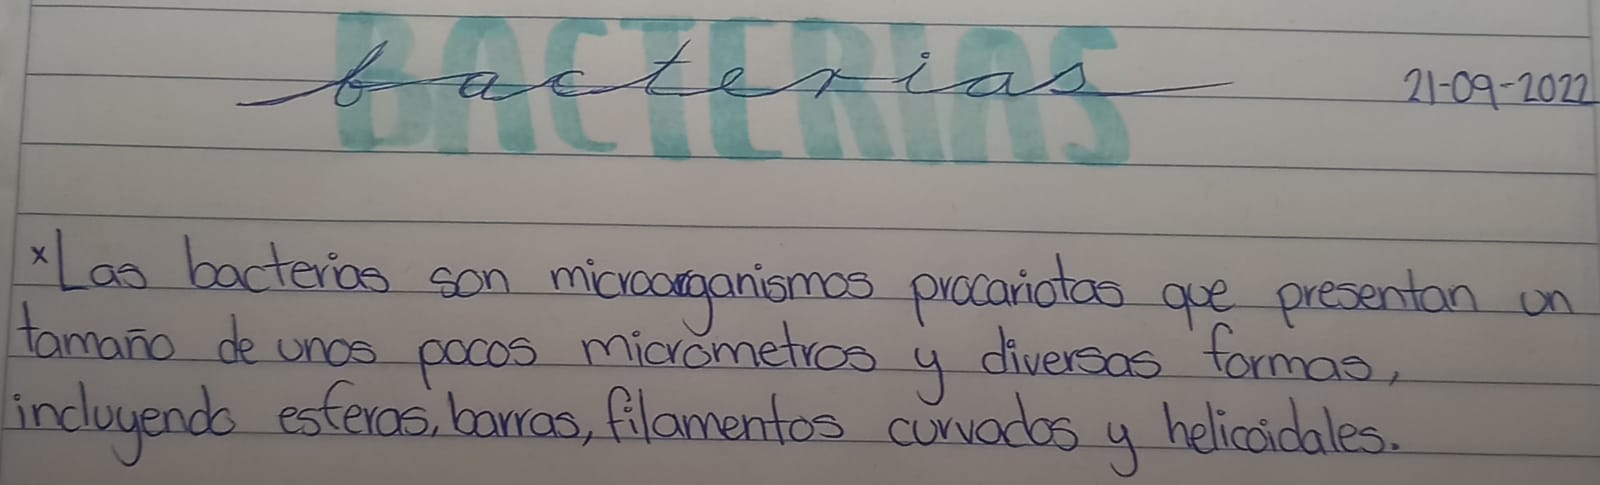 BACTERIAS
bacterias
21-09-2022
*Las bacterias son microorganismos procariotas que presentan un
tamaño de unos pocos micrometros y diversas formas,
incluyendo esferas, barras, filamentos curvados y helicoidales.